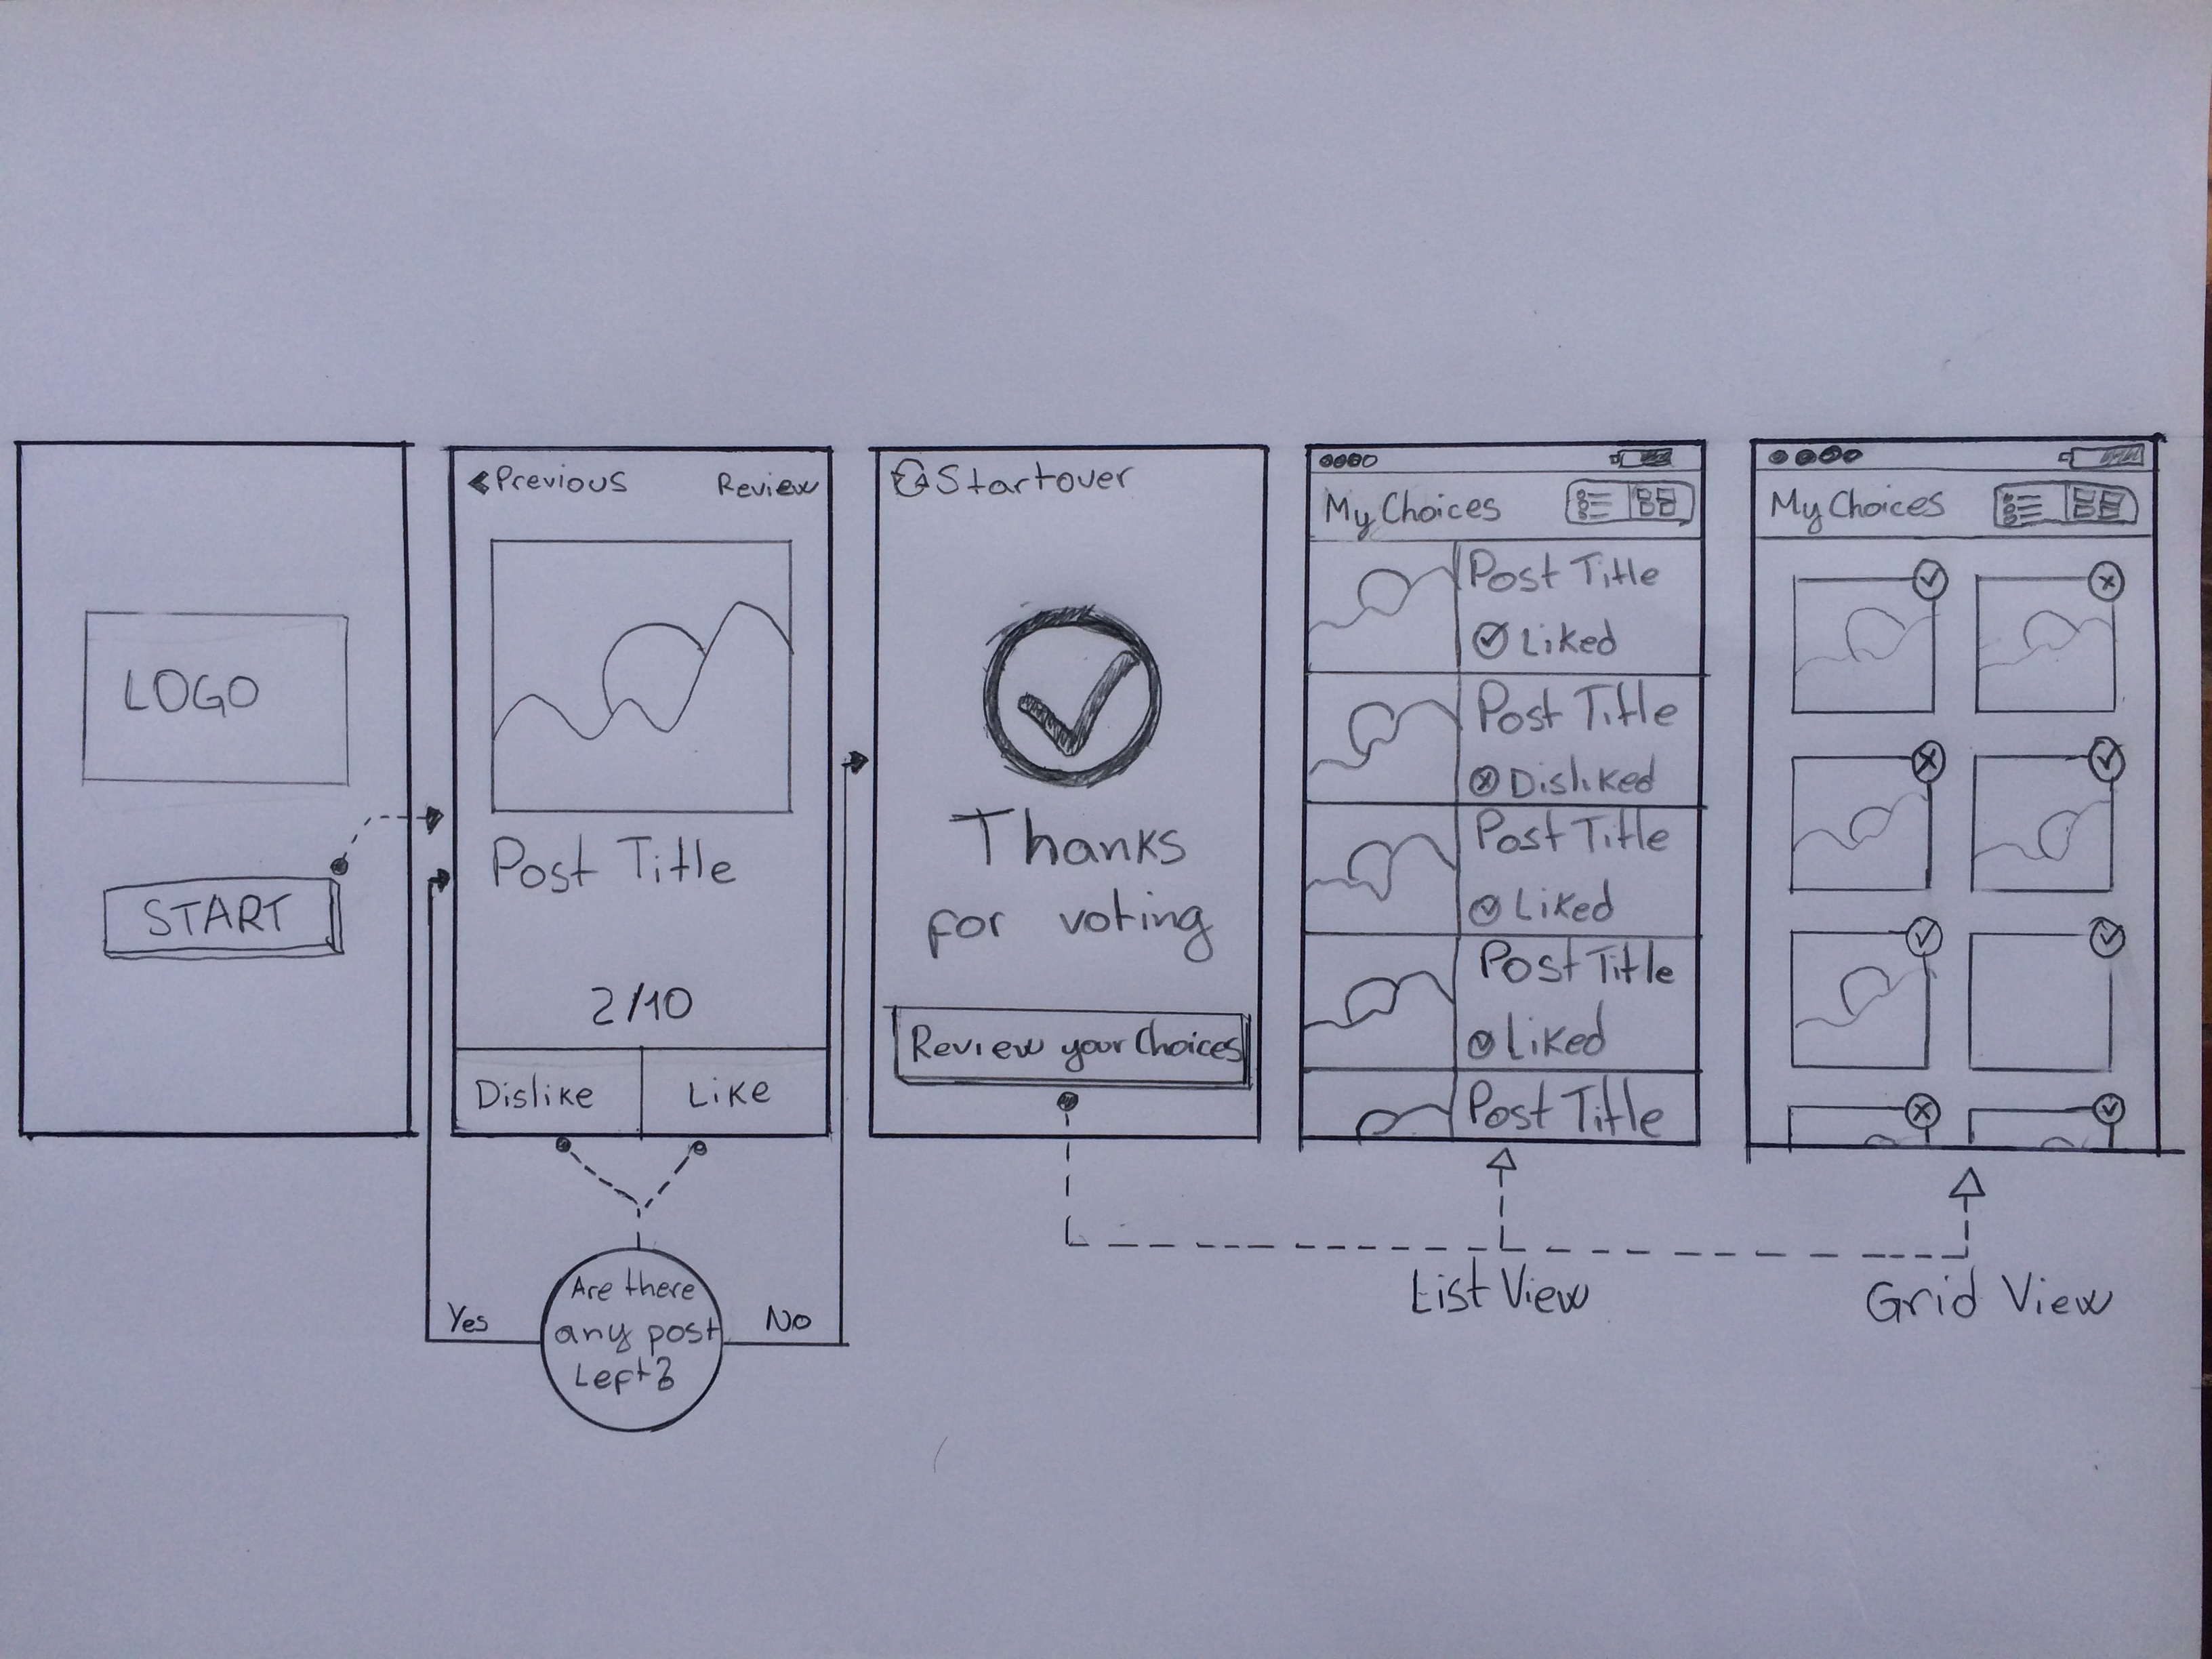 LOGO
START
Previous
Review
Post Title
2/10
Dislike
Like
Yes
Are there
any post
Left?
No
Startover
Thanks
for voting
Review your Choices
My Choices
Post Title
Liked
Post Title
Disliked
Post Title
Liked
Post Title
Liked
Post Title
List View
My Choices
Grid View